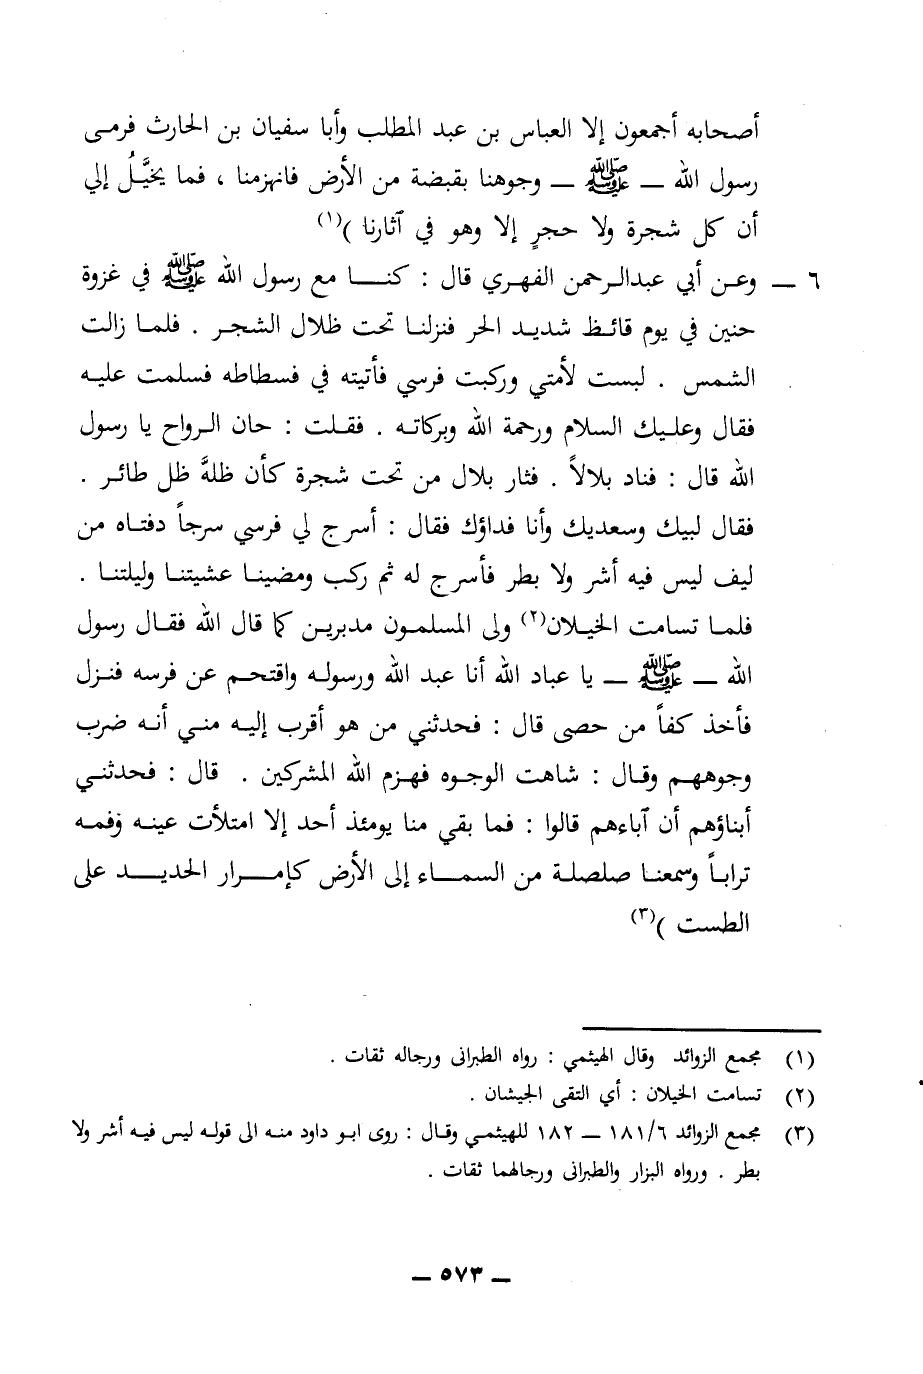 أصحابه أجمعون إلا العباس بن عبد المطلب وأبا سفيان بن الحارث فرمى
رسول الله ــ ﷺ ــ وجوهنا بقبضة من الأرض فانهزمنا ، فما يخيَّلُ إلي
أن كل شجرة ولا حجرٍ إلا وهو في آثارنا )(١)
٦ ــ وعن أبي عبدالرحمن الفهري قال : كنا مع رسول الله ﷺ في غزوة
حنين في يوم قائظ شديد الحر فنزلنا تحت ظلال الشجر . فلما زالت
الشمس . لبست لأمتي وركبت فرسي فأتيته في فسطاطه فسلمت عليه
فقال وعليك السلام ورحمة الله وبركاته . فقلت : حان الرواح يا رسول
الله قال : فناد بلالاً . فثار بلال من تحت شجرة كأن ظلهَّ ظل طائر .
فقال لبيك وسعديك وأنا فداؤك فقال : أسرج لي فرسي سرجاً دفتاه من
ليف ليس فيه أشر ولا بطر فأسرج له ثم ركب ومضينا عشيتنا وليلتنا .
فلما تسامت الخيلان(٢) ولى المسلمون مدبرين كما قال الله فقال رسول
الله ــ ﷺ ــ يا عباد الله أنا عبد الله ورسوله واقتحم عن فرسه فنزل
فأخذ كفاً من حصى قال : فحدثني من هو أقرب إليه مني أنه ضرب
وجوههم وقال : شاهت الوجوه فهزم الله المشركين . قال : فحدثني
أبناؤهم أن آباءهم قالوا : فما بقي منا يومئذ أحد إلا امتلأت عينه وفمه
تراباً وسمعنا صلصلة من السماء إلى الأرض كإمرار الحديد على
الطست )(٣)
(١) مجمع الزوائد وقال الهيثمي : رواه الطبرانى ورجاله ثقات .
(٢) تسامت الخيلان : أي التقى الجيشان .
(٣) مجمع الزوائد ١٨١/٦ ــ ١٨٢ للهيثمي وقال : روى ابو داود منه الى قوله ليس فيه أشر ولا
بطر . ورواه البزار والطبرانى ورجالهما ثقات .
ــ ٥٧٣ ــ